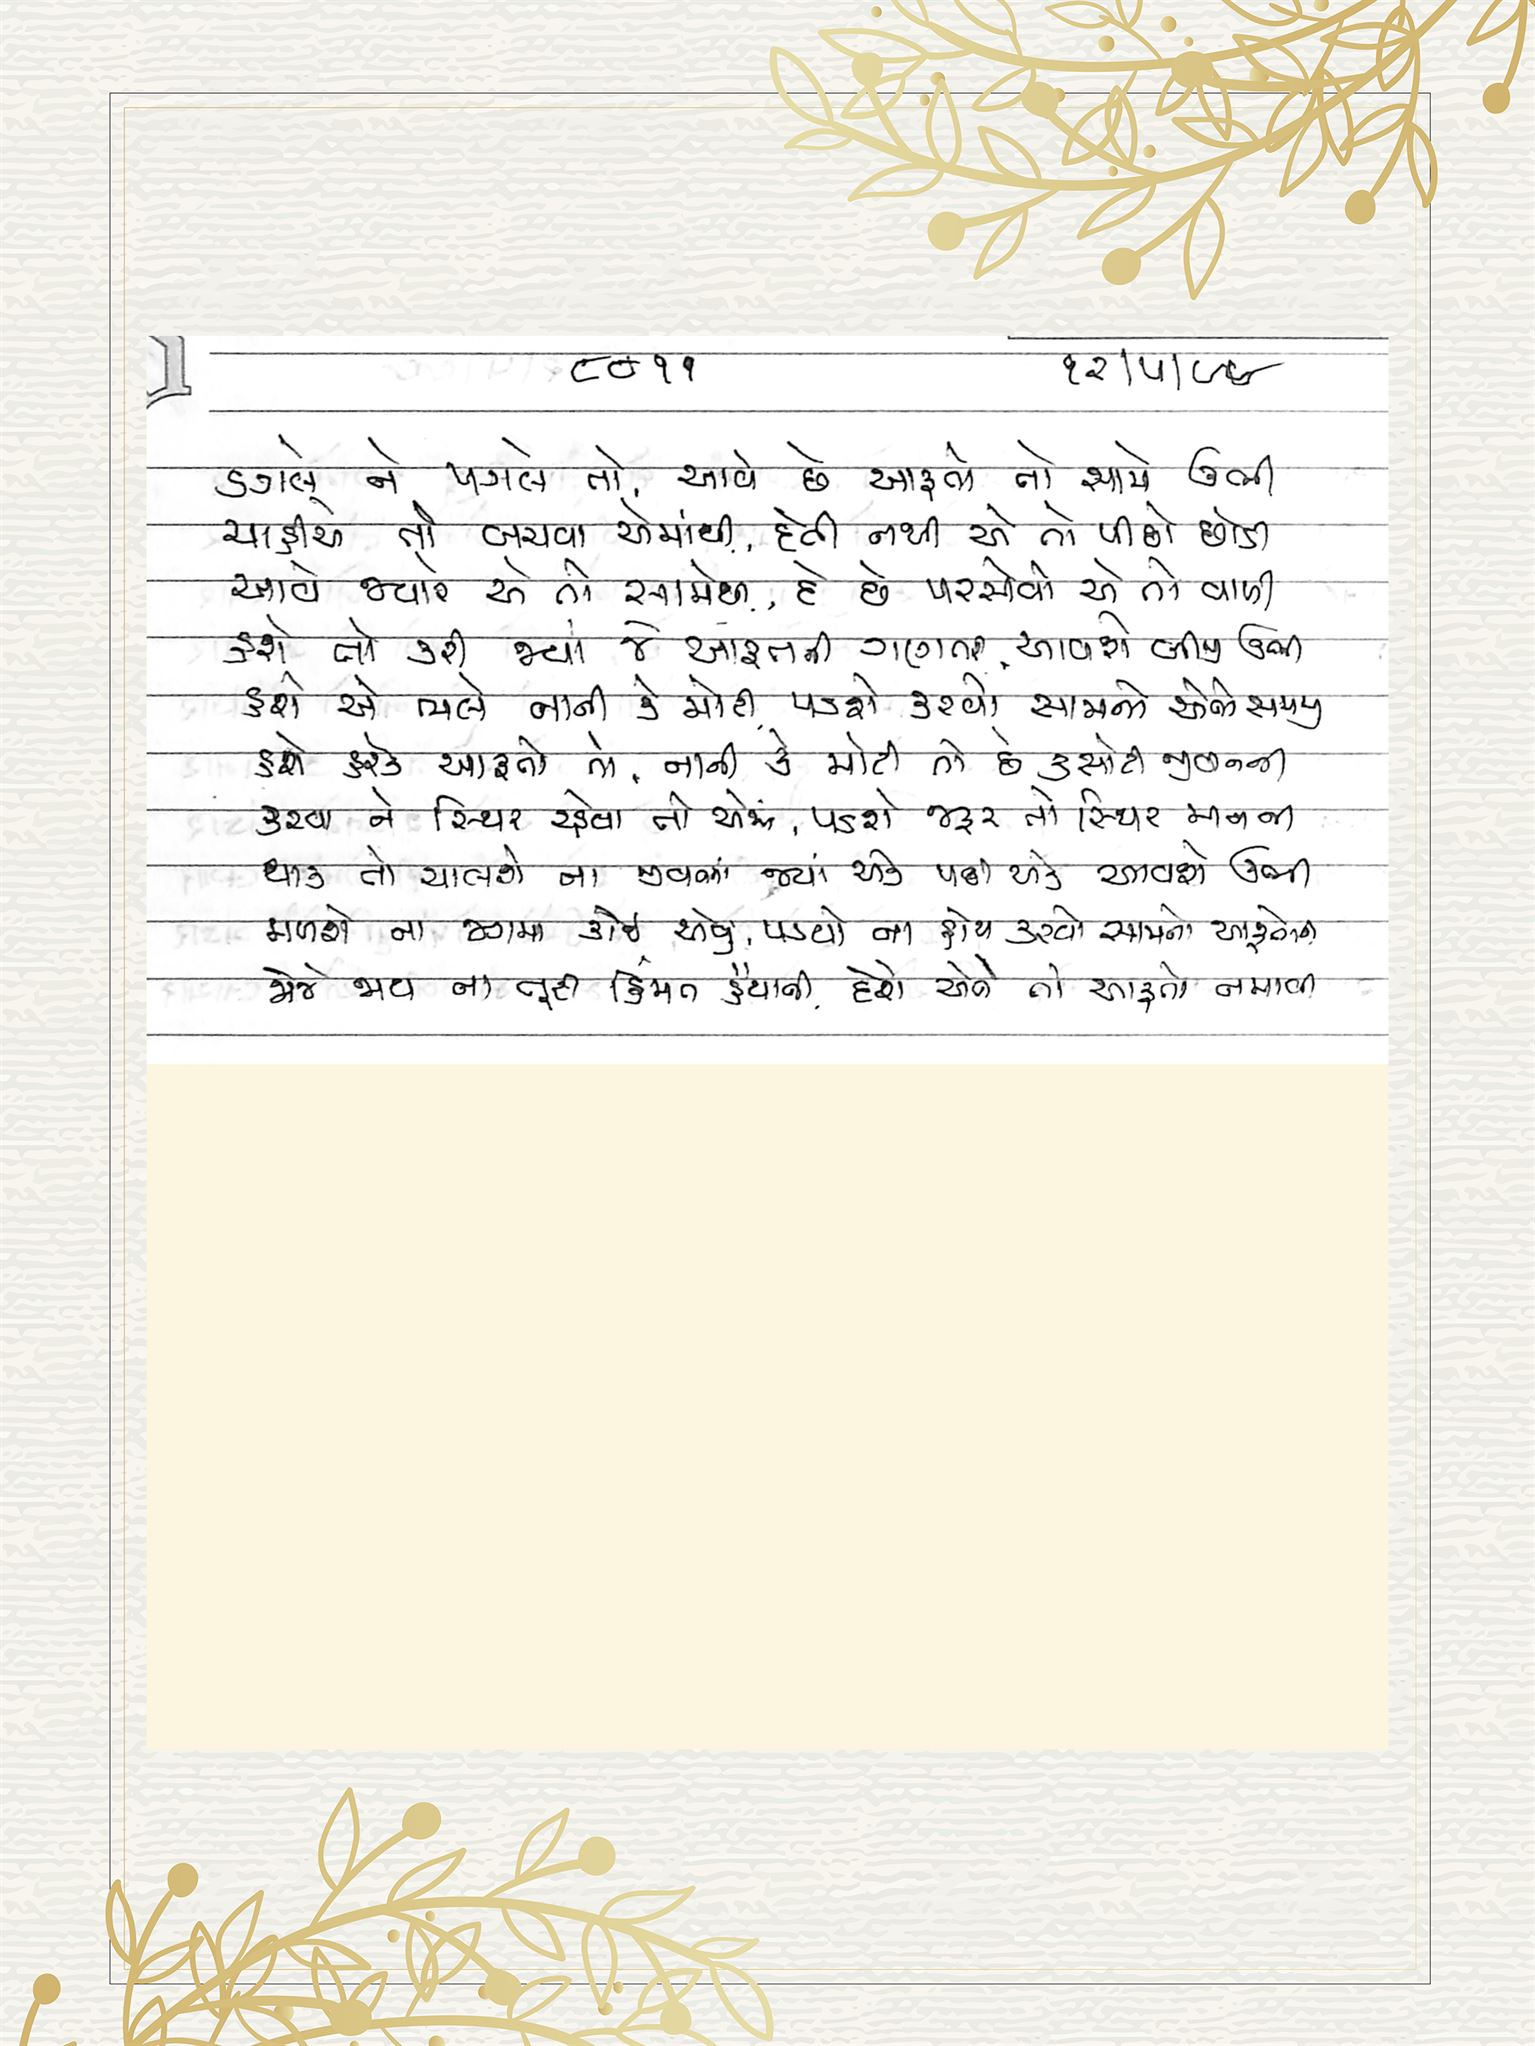 ૮૭૧૧ ૧૨/૫/૯૬
ડગલે ને પગલે તો, આવે છે આફતો તો સામે ઊભી
ચાહીએ તો બચવા એમાંથી, દેતી નથી એ તો પીછો છોડી
આવે જ્યારે એ તો સામેથી, દે છે પરસેવો એ તો વાળી
હશે તો કરી જ્યાં જે આફતની ગણતરી, આવશે બીજી ઊભી
હશે એ ભલે નાની કે મોટી, પડશે કરવો સામનો એનો
હશે હરેક આફતો તો, નાની કે મોટી તો છે કસોટી જીવનની
કરવા ને સ્થિર રહેવા તો એમાં, પડશે જરૂર તો સ્થિર મનની
થાક તો ચાલશે ના જીવનમાં જ્યાં એક પછી એક આવશે ઊભી
મળશે ના જગમાં કોઈ એવું, પડયો ના હોય કરવો સામનો આફતોનો
ભય ના તૂટી હિંમત હૈયાની, દેશે એને તો આફતો નમાવી